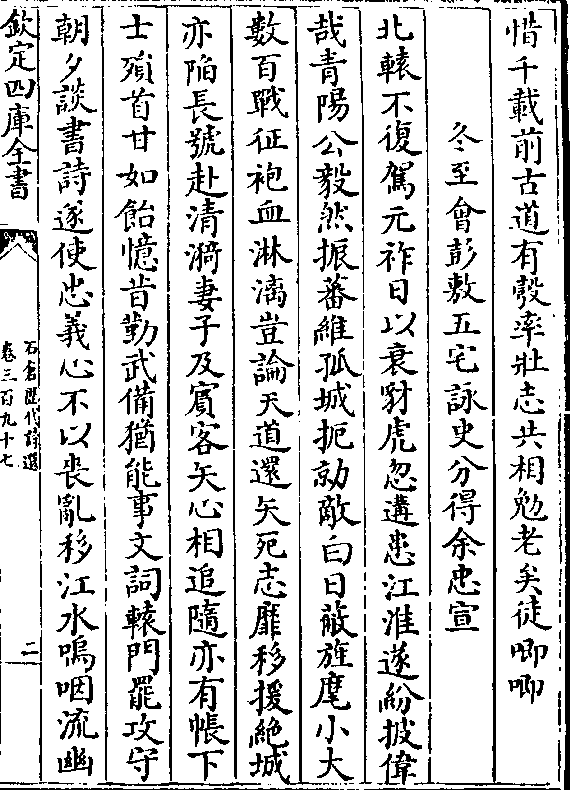 惜千載前古道有彀率壯志共相勉老矣徒唧唧
冬至會彭敷五宅詠史分得余忠宣
北轅不復駕元祚日以衰豺虎忽遘患江淮遂紛披偉
哉青陽公毅然振藩維孤城扼勍敵白日蔽旌麾小大
數百戰征袍血淋漓豈論天道還矢死志靡移援絶城
亦陷長號赴清漪妻子及賓客矢心相追隨亦有帳下
士殞首甘如飴憶昔勤武備猶能事文詞轅門罷攻守
朝夕談書詩遂使忠義心不以喪亂移江水嗚咽流幽
欽定四庫全書
石倉歴代詩選
卷三百九十七
二